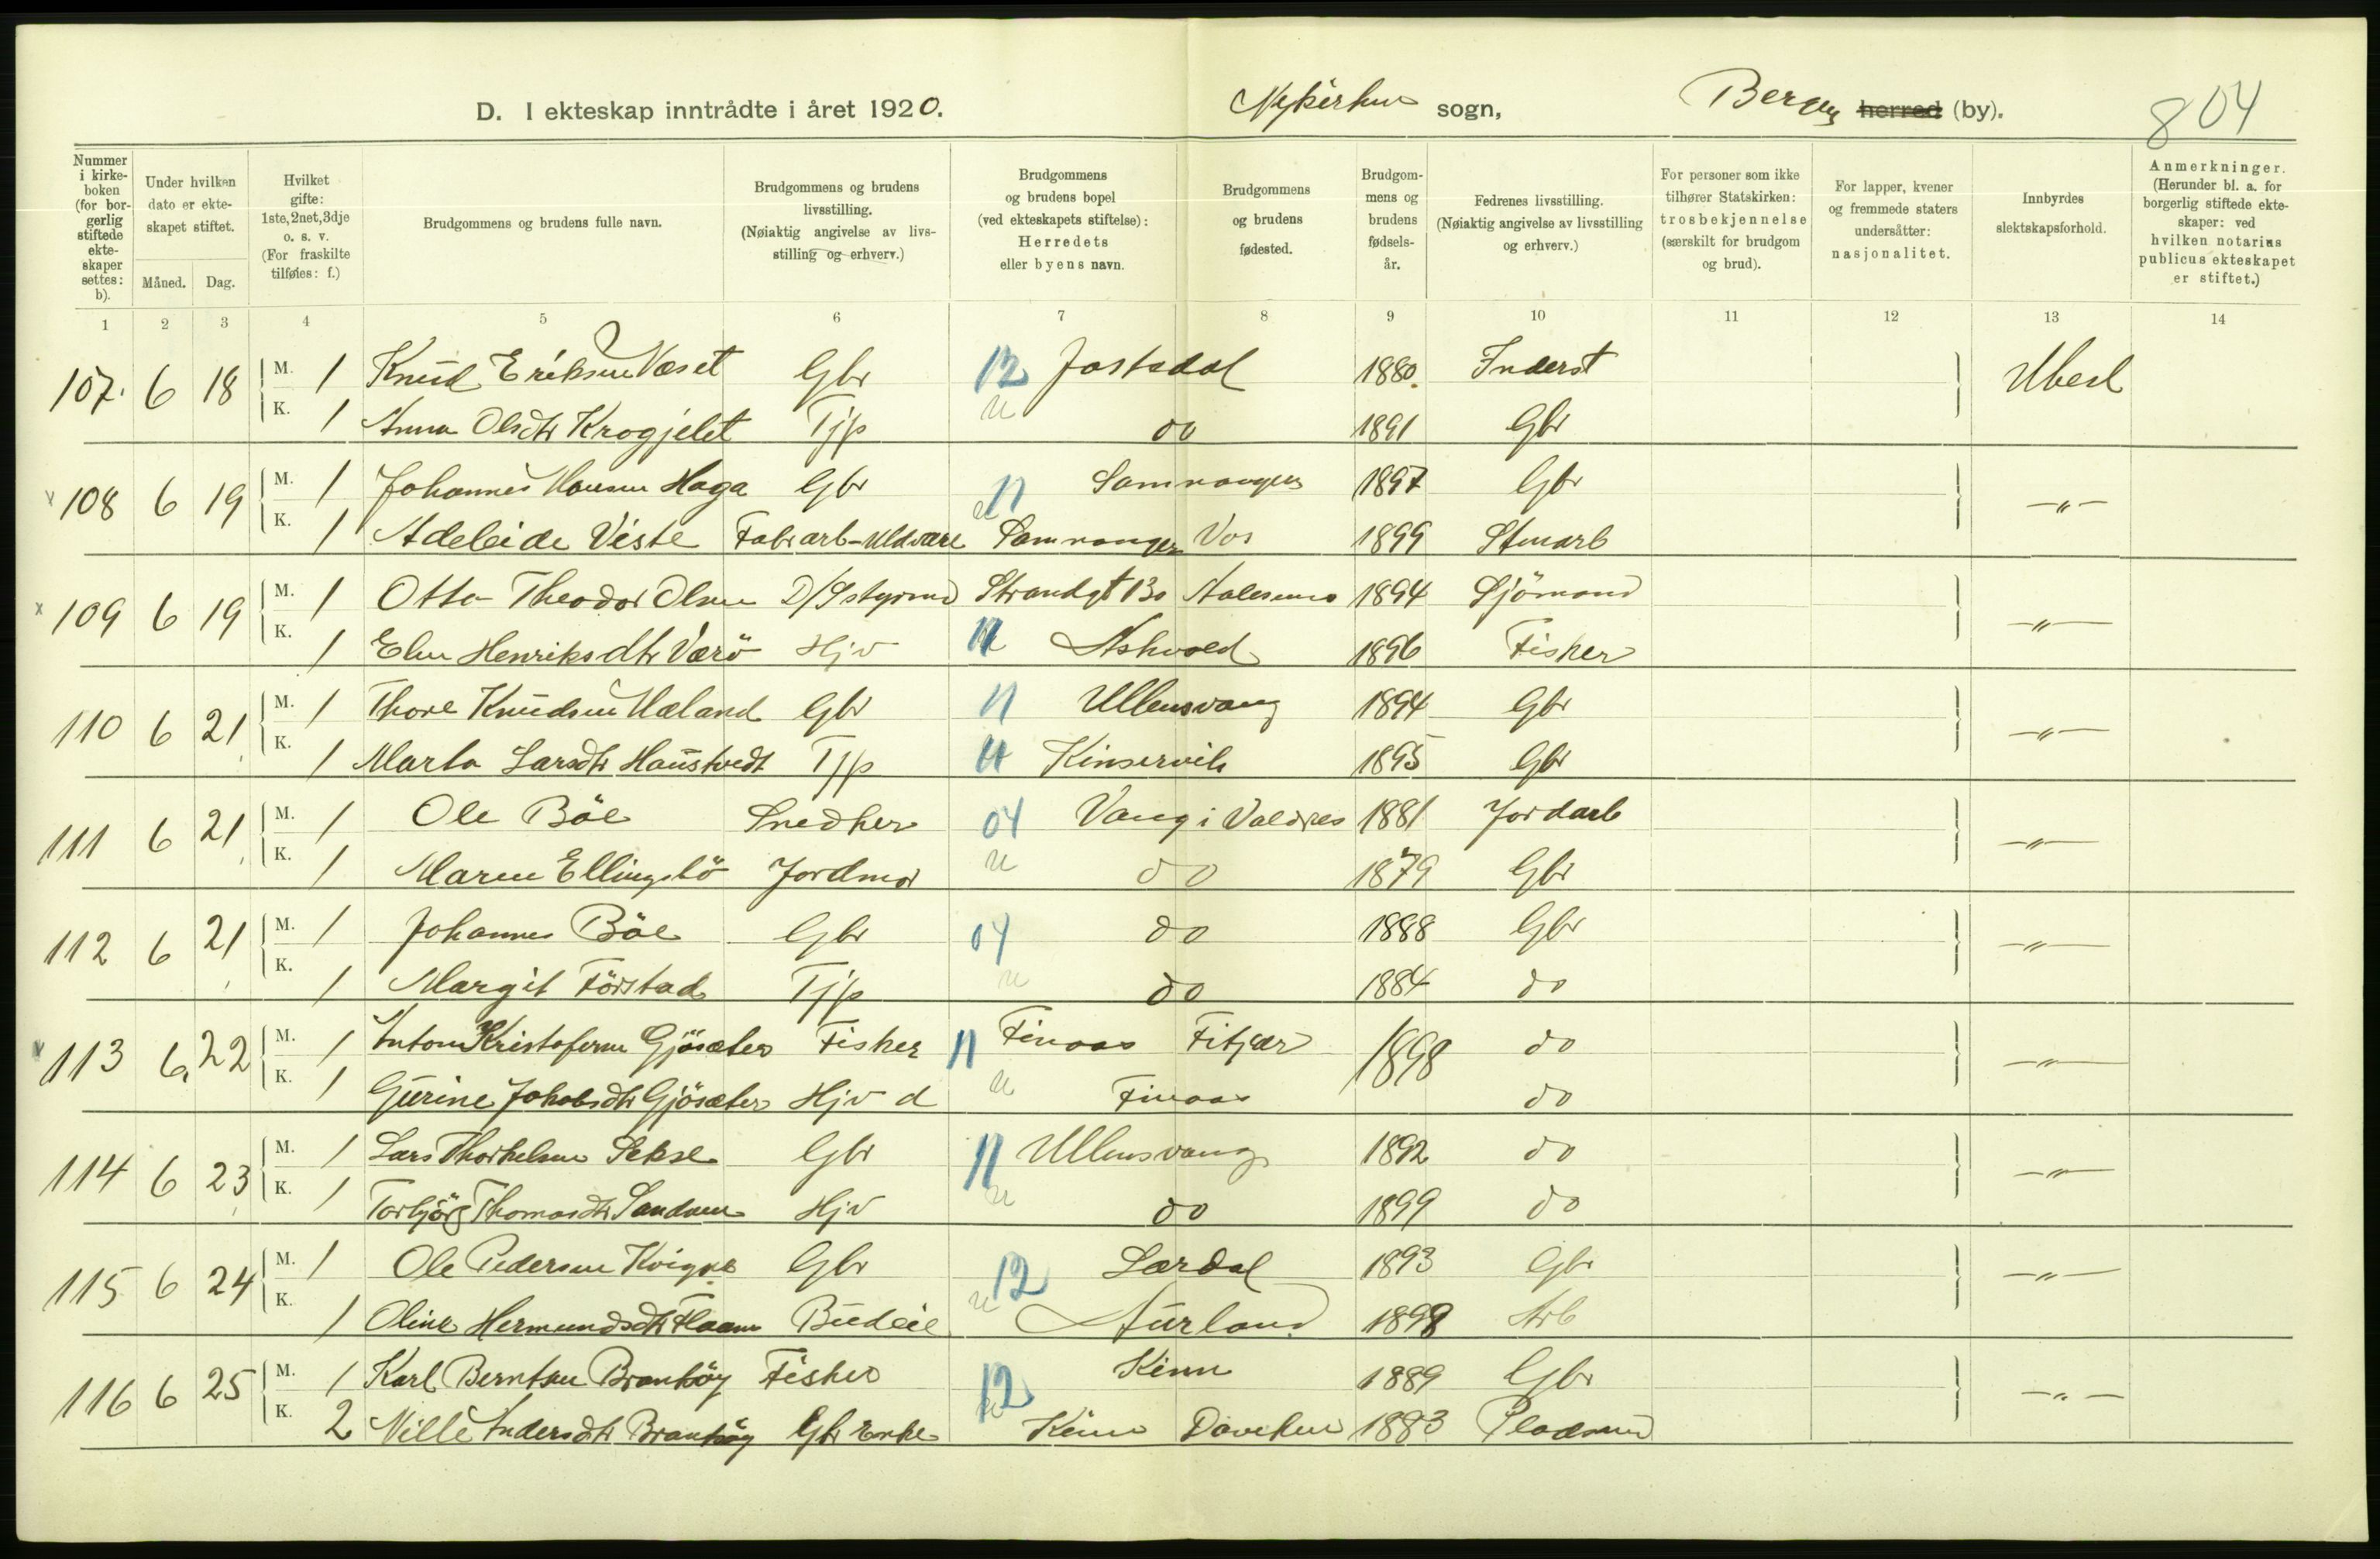 D. I ekteskap inntrådte i året 1920.
Nykirkens sogn,
Bergen herred (by).
804
Nummer i kirke-boken (for bor-gerlig stiftede ekte-skaper settes: b).
Under hvilken dato er ekte-skapet stiftet.
Måned. Dag.
Hvilket gifte: 1ste, 2net, 3dje o. s. v. (For fraskilte tilføies: f.)
Brudgommens og brudens fulle navn.
Brudgommens og brudens livsstilling. (Nøiaktig angivelse av livs-stilling og erhverv.)
Brudgommens og brudens bopel (ved ekteskapets stiftelse): Herredets eller byens navn.
Brudgommens og brudens fødested.
Brudgom-mens og brudens fødsels-år.
Fedrenes livsstilling. (Nøiaktig angivelse av livsstilling og erhverv.)
For personer som ikke tilhører Statskirken: trosbekjennelse (særskilt for brudgom og brud).
For lapper, kvener og fremmede staters undersåtter: nasjonalitet.
Innbyrdes slektskapsforhold.
Anmerkninger. (Herunder bl. a. for borgerlig stiftede ekte-skaper: ved hvilken notarius publicus ekteskapet er stiftet.)
1 2 3 4 5 6 7 8 9 10 11 12 13 14
107. 6 18 M. 1 Knud Eriksen Væset Gbr 12 Jostedal 1880. Inderst Ubesl
K. 1 Anna Olsdtr Krogjelet Tjp do 1891 Gbr
108 6 19 M. 1 Johannes Hansen Haga Gbr 11 Samnanger 1897 Gbr —„—
K. 1 Adeleide Viste Fabrarb-Uldvare Samnanger Vos 1899 Stenarb
x 109 6 19 M. 1 Otto Theodor Olsen D/S styrmd Strandgt 130 Aalesund 1894 Sjömand —„—
K. 1 Elen Henriksdtr Værö Hjv 11 Askvoll 1896 Fisker
110 6 21 M. 1 Thore Knudsen Mæland Gbr 11 Ullensvang 1894 Gbr —„—
K. 1 Marta Larsdtr Haustvedt Tjp 11 Kinservik 1895 Gbr
111 6 21 M. 1 Ole Böe Snedker 04 Vang i Valdres 1881 Jordarb —„—
K. 1 Maren Ellingsbö Jordmor do 1879 Gbr
112 6 21 M. 1 Johannes Böe Gbr 04 do 1888 Gbr —„—
K. 1 Margit Förstad Tjp do 1884 do
113 6 22 M. 1 Anton Kristofersen Gjösæter Fisker 11 Finaas Fitjar 1898 do —„—
K. 1 Gurine Jakobsdtr Gjösæter Hjv d Finaas do
114 6 23 M. 1 Lars Thorkelsen Sekse Gbr 11 Ullensvang 1892 do —„—
K. 1 Torbjörg Thomasdtr Sandven Hjv do 1899 do
115 6 24 M. 1 Ole Pedersen Kvigne Gbr 12 Lærdal 1893 Gbr —„—
K. 1 Oline Hermundsdtr Flaam Budeie Aurland 1898 Arb
116 6 25 M. 1 Karl Berntsen Brandsöy Fisker 12 Kinn 1889 Gbr —„—
K. 2 Nille Andersdtr Brandsöy Gbr Enke Kinn Daviken 1883 Pladsmd